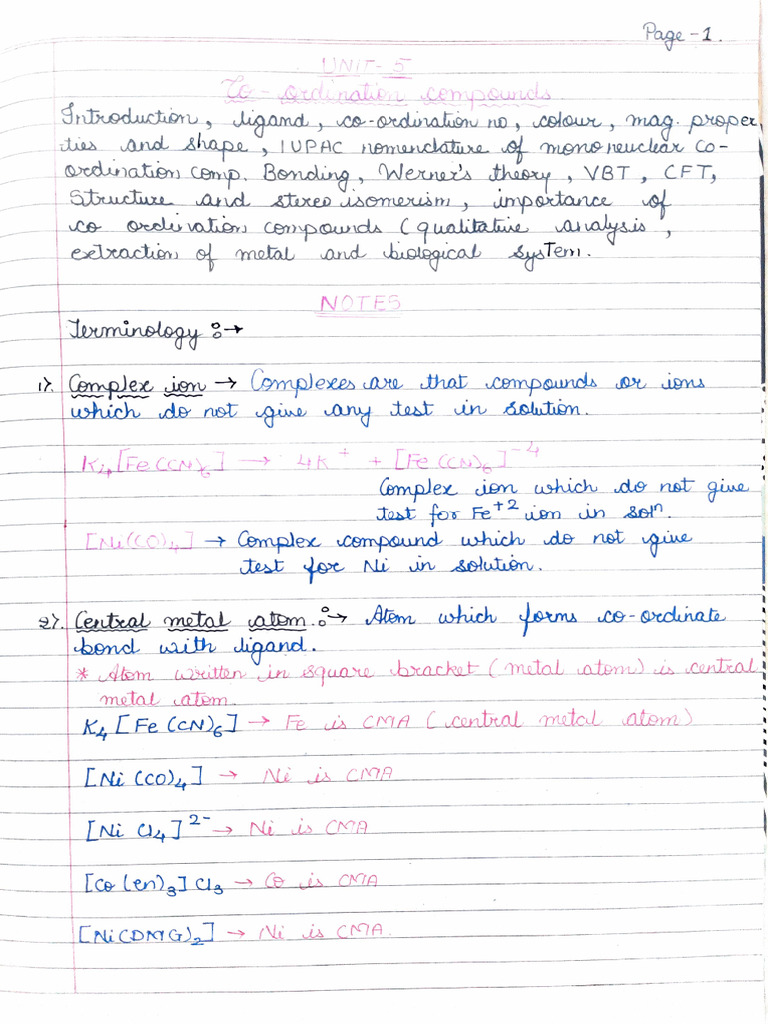 Page-1.
UNIT-5
Co-ordination compounds
Introduction, ligand, co-ordination no, colour, mag. proper
ties and shape, IUPAC nomenclature of mononeuclear co-
ordination comp. Bonding, Werner's theory, VBT, CFT,
Structure and stereoisomerism, importance of
co ordination compounds (qualitative analysis,
extraction of metal and biological system.
NOTES
Terminology :→
1). Complex ion → Complexes are that compounds or ions
which do not give any test in solution.
K₄[Fe(CN)₆] → 4K⁺ + [Fe(CN)₆]⁻⁴
Complex ion which do not give
test for Fe⁺² ion in solⁿ.
[Ni(CO)₄] → Complex compound which do not give
test for Ni in solution.
2). Central metal atom :→ Atom which forms co-ordinate
bond with ligand.
* Atom written in square bracket (metal atom) is central
metal atom.
K₄[Fe(CN)₆] → Fe is CMA (central metal atom)
[Ni(CO)₄] → Ni is CMA
[NiCl₄]²⁻ → Ni is CMA
[Co(en)₃]Cl₃ → Co is CMA
[Ni(DMG)₂] → Ni is CMA.